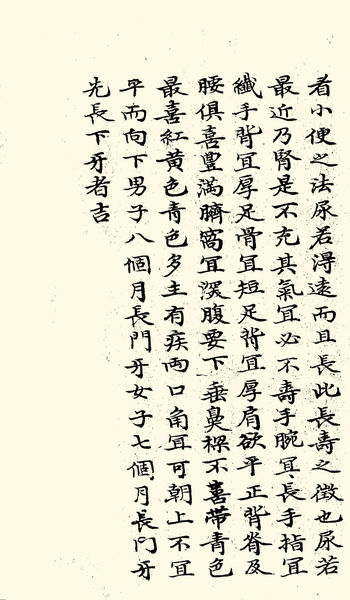 看小便之法尿若淂遠而且長此長壽之徵也尿若
最近乃腎是不充其氣冝必不壽手腕冝長手指冝
纖手背冝厚足骨冝短足背冝厚肩欲平正背脊及
腰俱喜豐满臍窩冝深腹要下垂鼻樑不喜帶青色
最喜紅黄色青色多主有疾両口角冝可朝上不冝
平而向下男子八個月長門牙女子七個月長門牙
先長下牙者吉